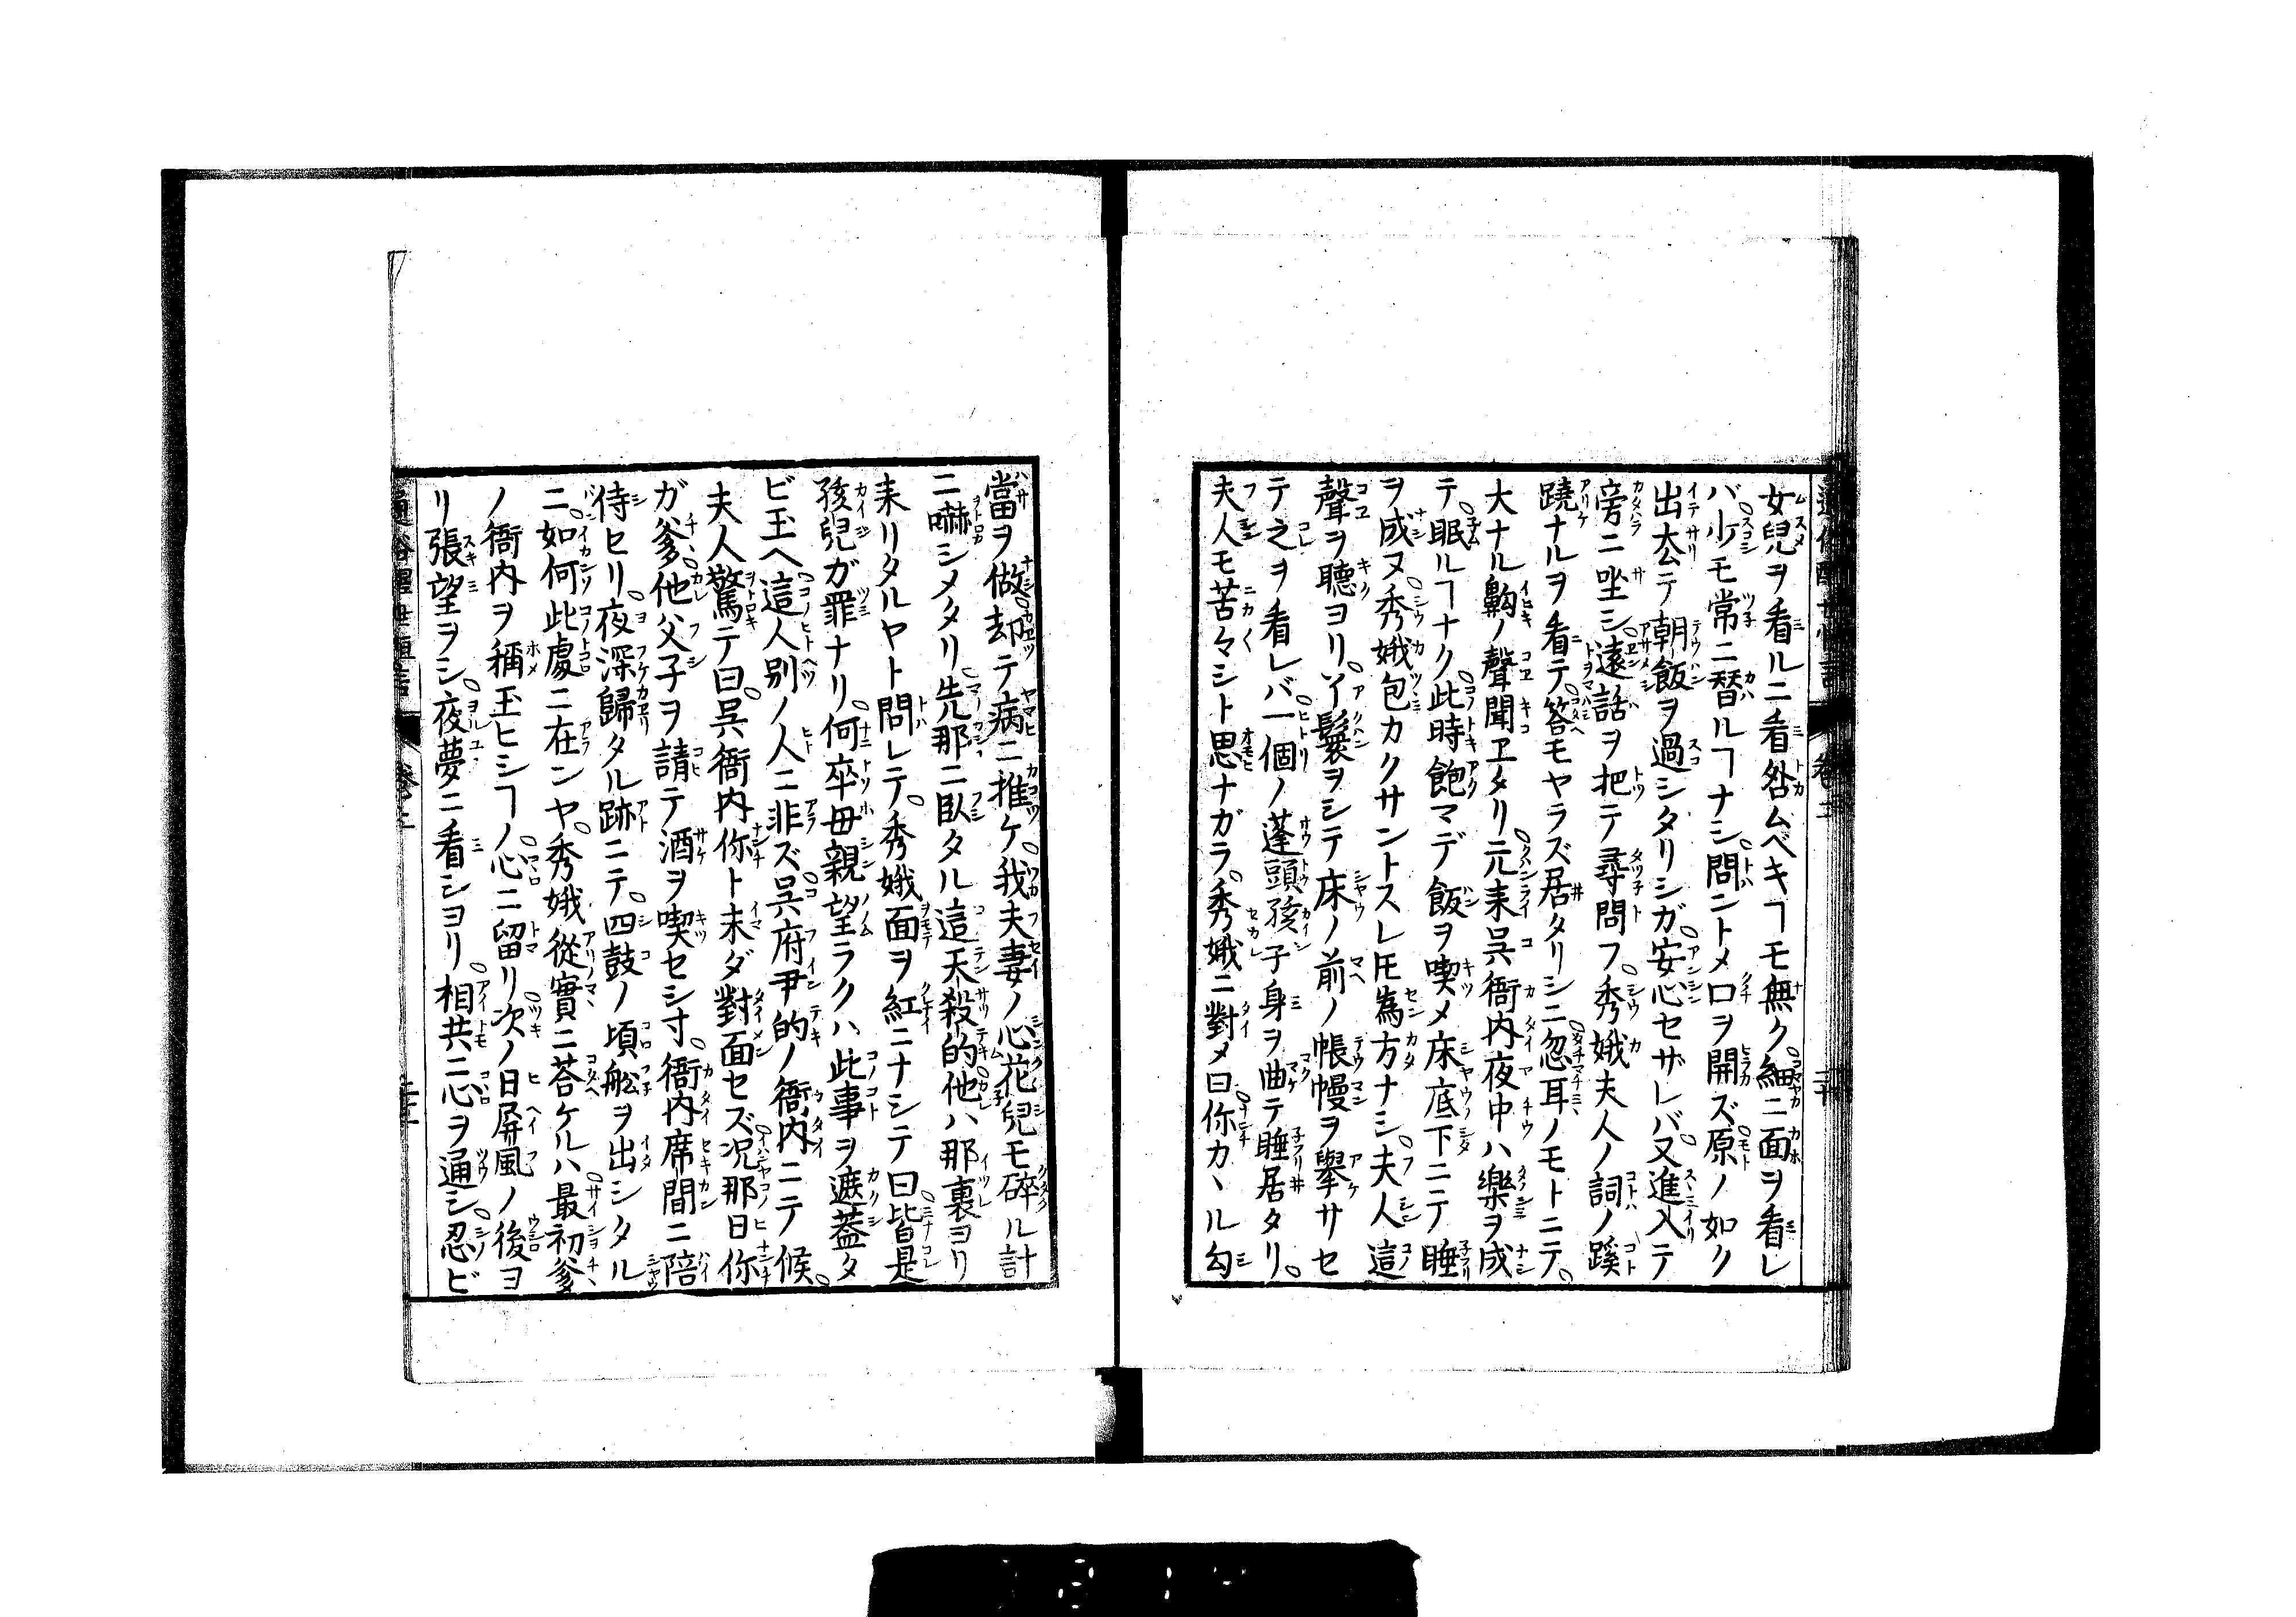 女兒ヲ看ルニ看咎ムベキヿモ無ク細ニ面ヲ看レ
バ少モ常ニ替ルヿナシ問ントメ口ヲ開ズ原ノ如ク
出去テ朝飯ヲ過シタリシガ安心セザレバ又進入テ
旁ニ坐シ遠話ヲ把テ尋問フ秀娥夫人ノ詞ノ蹊
蹺ナルヲ看テ答モヤラズ居タリシニ忽耳ノモトニテ
大ナル鼾ノ聲聞ヱタリ元来呉衙内夜中ハ樂ヲ成
テ眠ルヿナク此時飽マデ飯ヲ喫メ床底下ニテ睡
ヲ成ヌ秀娥包カクサントスレ𪜈為方ナシ夫人這
聲ヲ聴ヨリ丫鬟ヲシテ床ノ前ノ帳幔ヲ擧サセ
テ之ヲ看レバ一個ノ蓬頭孩子身ヲ曲テ睡居タリ
夫人モ苦々シト思ナガラ秀娥ニ對メ曰你カヽル勾
當ヲ做却テ病ニ推ケ我夫妻ノ心花兒モ碎ル計
ニ嚇シメタリ先那ニ臥タル這天殺的他ハ那裏ヨリ
来リタルヤト問レテ秀娥面ヲ紅ニナシテ曰皆是
孩兒ガ罪ナリ何卒母親望ラクハ此事ヲ遮葢タ
ビ玉ヘ這人別ノ人ニ非ズ呉府尹的ノ衙内ニテ候
夫人驚テ曰呉衙内你ト未ダ對面セズ况那日你
ガ爹他父子ヲ請テ酒ヲ喫セシ寸衙内席間ニ陪
侍ヒリ夜深歸タル跡ニテ四鼓ノ頃舩ヲ出シタル
ニ如何此處ニ在ンヤ秀娥從實ニ荅ケルハ最初爹
ノ衙内ヲ稱玉ヒシヿノ心ニ留リ次ノ日屏風ノ後ヨ
リ張望ヲシ夜夢ニ看シヨリ相共ニ心ヲ通シ忍ビ